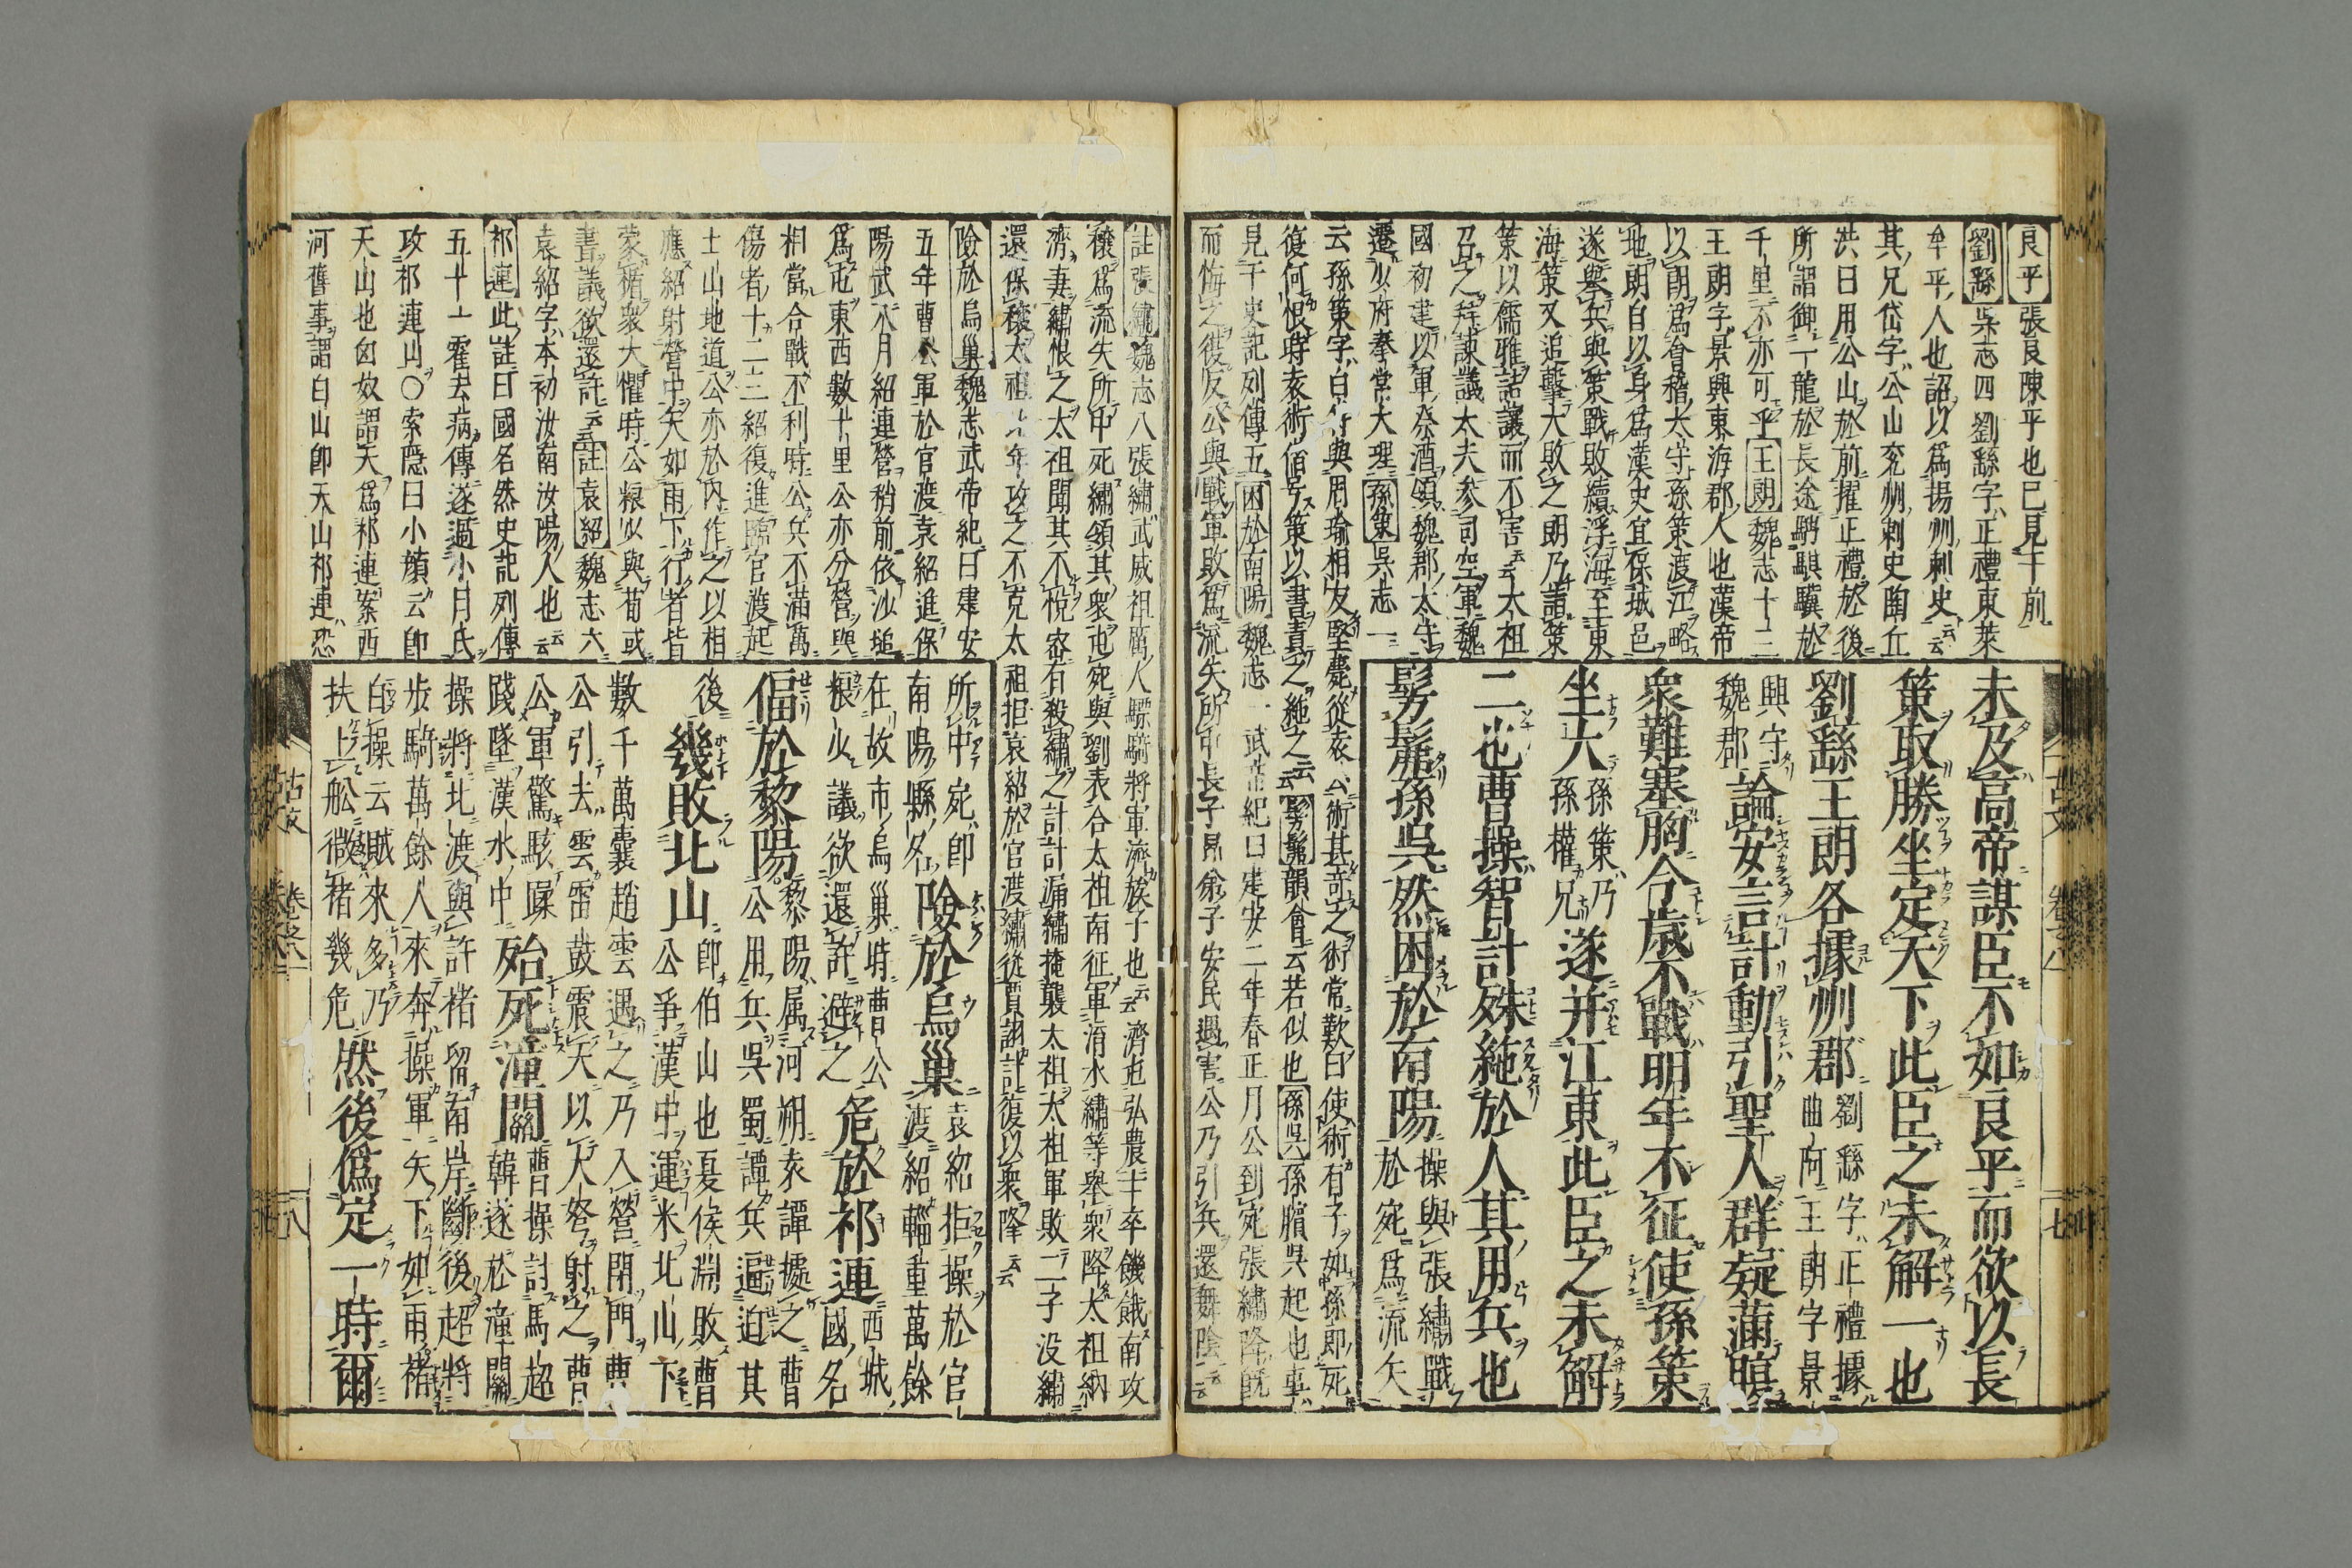 良平張良陳平也已見于前
劉繇呉志四劉繇字正禮東萊
牟平人也詔以爲揚州刺史云云
其兄岱字公山兗州刺史陶丘
洪曰用公山於前擢正禮於後
所謂御二龍於長途騁騏驥於
千里不亦可乎王朗魏志十三
王朗字景興東海郡人也漢帝
以朗爲會稽太守孫策渡江略
地朗自以身爲漢吏宜保城邑
遂擧兵與策戰敗續浮海至東
海策又追擊大敗之朗乃詣策
策以儒雅詰讓而不害云云太祖
召之拜諫議太夫参司空軍魏
國初建以軍祭酒領魏郡太守
遷少府奉常大理孫策呉志一
云孫策字白符與周瑜相友堅薨從袁公術甚奇之術常歎曰使術有子如孫郎死
復何恨時袁術僣号策以書責之絶之云云髣髴韻會云若似也孫呉孫臏呉起也事
見于史記列傳五困於南陽魏志一武帝紀曰建安二年春正月公到宛張繡降既
而悔之復反公與戰軍敗爲流矢所中長子昻弟子安民遇害公乃引兵還舞陰云云
未及高帝謀臣不如良平而欲以長
策取勝坐定天下此臣之未解一也
劉繇王朗各據州郡劉繇字正禮據
曲阿王朗字景
興守
魏郡論安言計動引聖人群疑滿腹
衆難塞胸今歳不戰明年不征使孫策
坐大孫策乃
孫權兄遂并江東此臣之未解
二也曹操智計殊絶於人其用兵也
髣髴孫呉然困於南陽操與張繡戰
於宛爲流矢
古文 卷之八 十七
註張繡魏志八張繡武威祖厲人驃騎將軍濟族子也云云濟屯弘農士卒饑餓南攻
穰爲流矢所中死繡領其衆屯宛與劉表合太祖南征軍淯水繡等舉衆降太祖納
濟妻繡恨之太祖聞其不悅密有殺繡之計計漏繡掩襲太祖太祖軍敗二子没繡
還保穰太祖比年攻之不克太祖拒袁紹於官渡繡從賈詡計復以衆降云云
險於烏巣魏志武帝紀曰建安
五年曹公軍於官渡袁紹進保
陽武八月紹連營稍前依沙塠
爲屯東西數十里公亦分營與
相當合戰不利時公兵不滿萬
傷者十二三紹復進臨官渡起
土山地道公亦於内作之以相
應紹射營中矢如雨下行者皆
蒙楯衆大懼時公粮少與荀或
書議欲還許云云註袁紹魏志六
袁紹字本初汝南汝陽人也云云
祁連此註曰國名然史記列傳
五十一霍去病傳遂過小月氏
攻祁連山○索隠曰小顔云即
天山也匈奴謂天爲祁連案西
河舊事謂白山即天山祁連恐
所中宛即
南陽縣名險於烏巣袁紹拒操於官
渡紹輜重萬餘
在故市烏巣時曹公
粮少議欲還許避之危於祁連西城
國名
偪於黎陽黎陽属河朔袁譚據之曹
公用兵呉蜀譚兵逼迫其
後幾敗北山即伯山也夏侯淵敗曹
公爭漢中運米北山下
數千萬囊趙雲遇之乃入營閉門曹
公引去雲雷鼓震天以大弩射之曹
公軍驚駭蹂
踐墜漢水中殆死潼關曹操討馬超
韓遂於潼關
操將北渡與許褚留南岸斷後超將
歩騎萬餘人來奔操軍矢下如雨褚
白操云賊來多乃
扶上舩微褚幾危然後僞定一時爾
古文 卷之八 十八